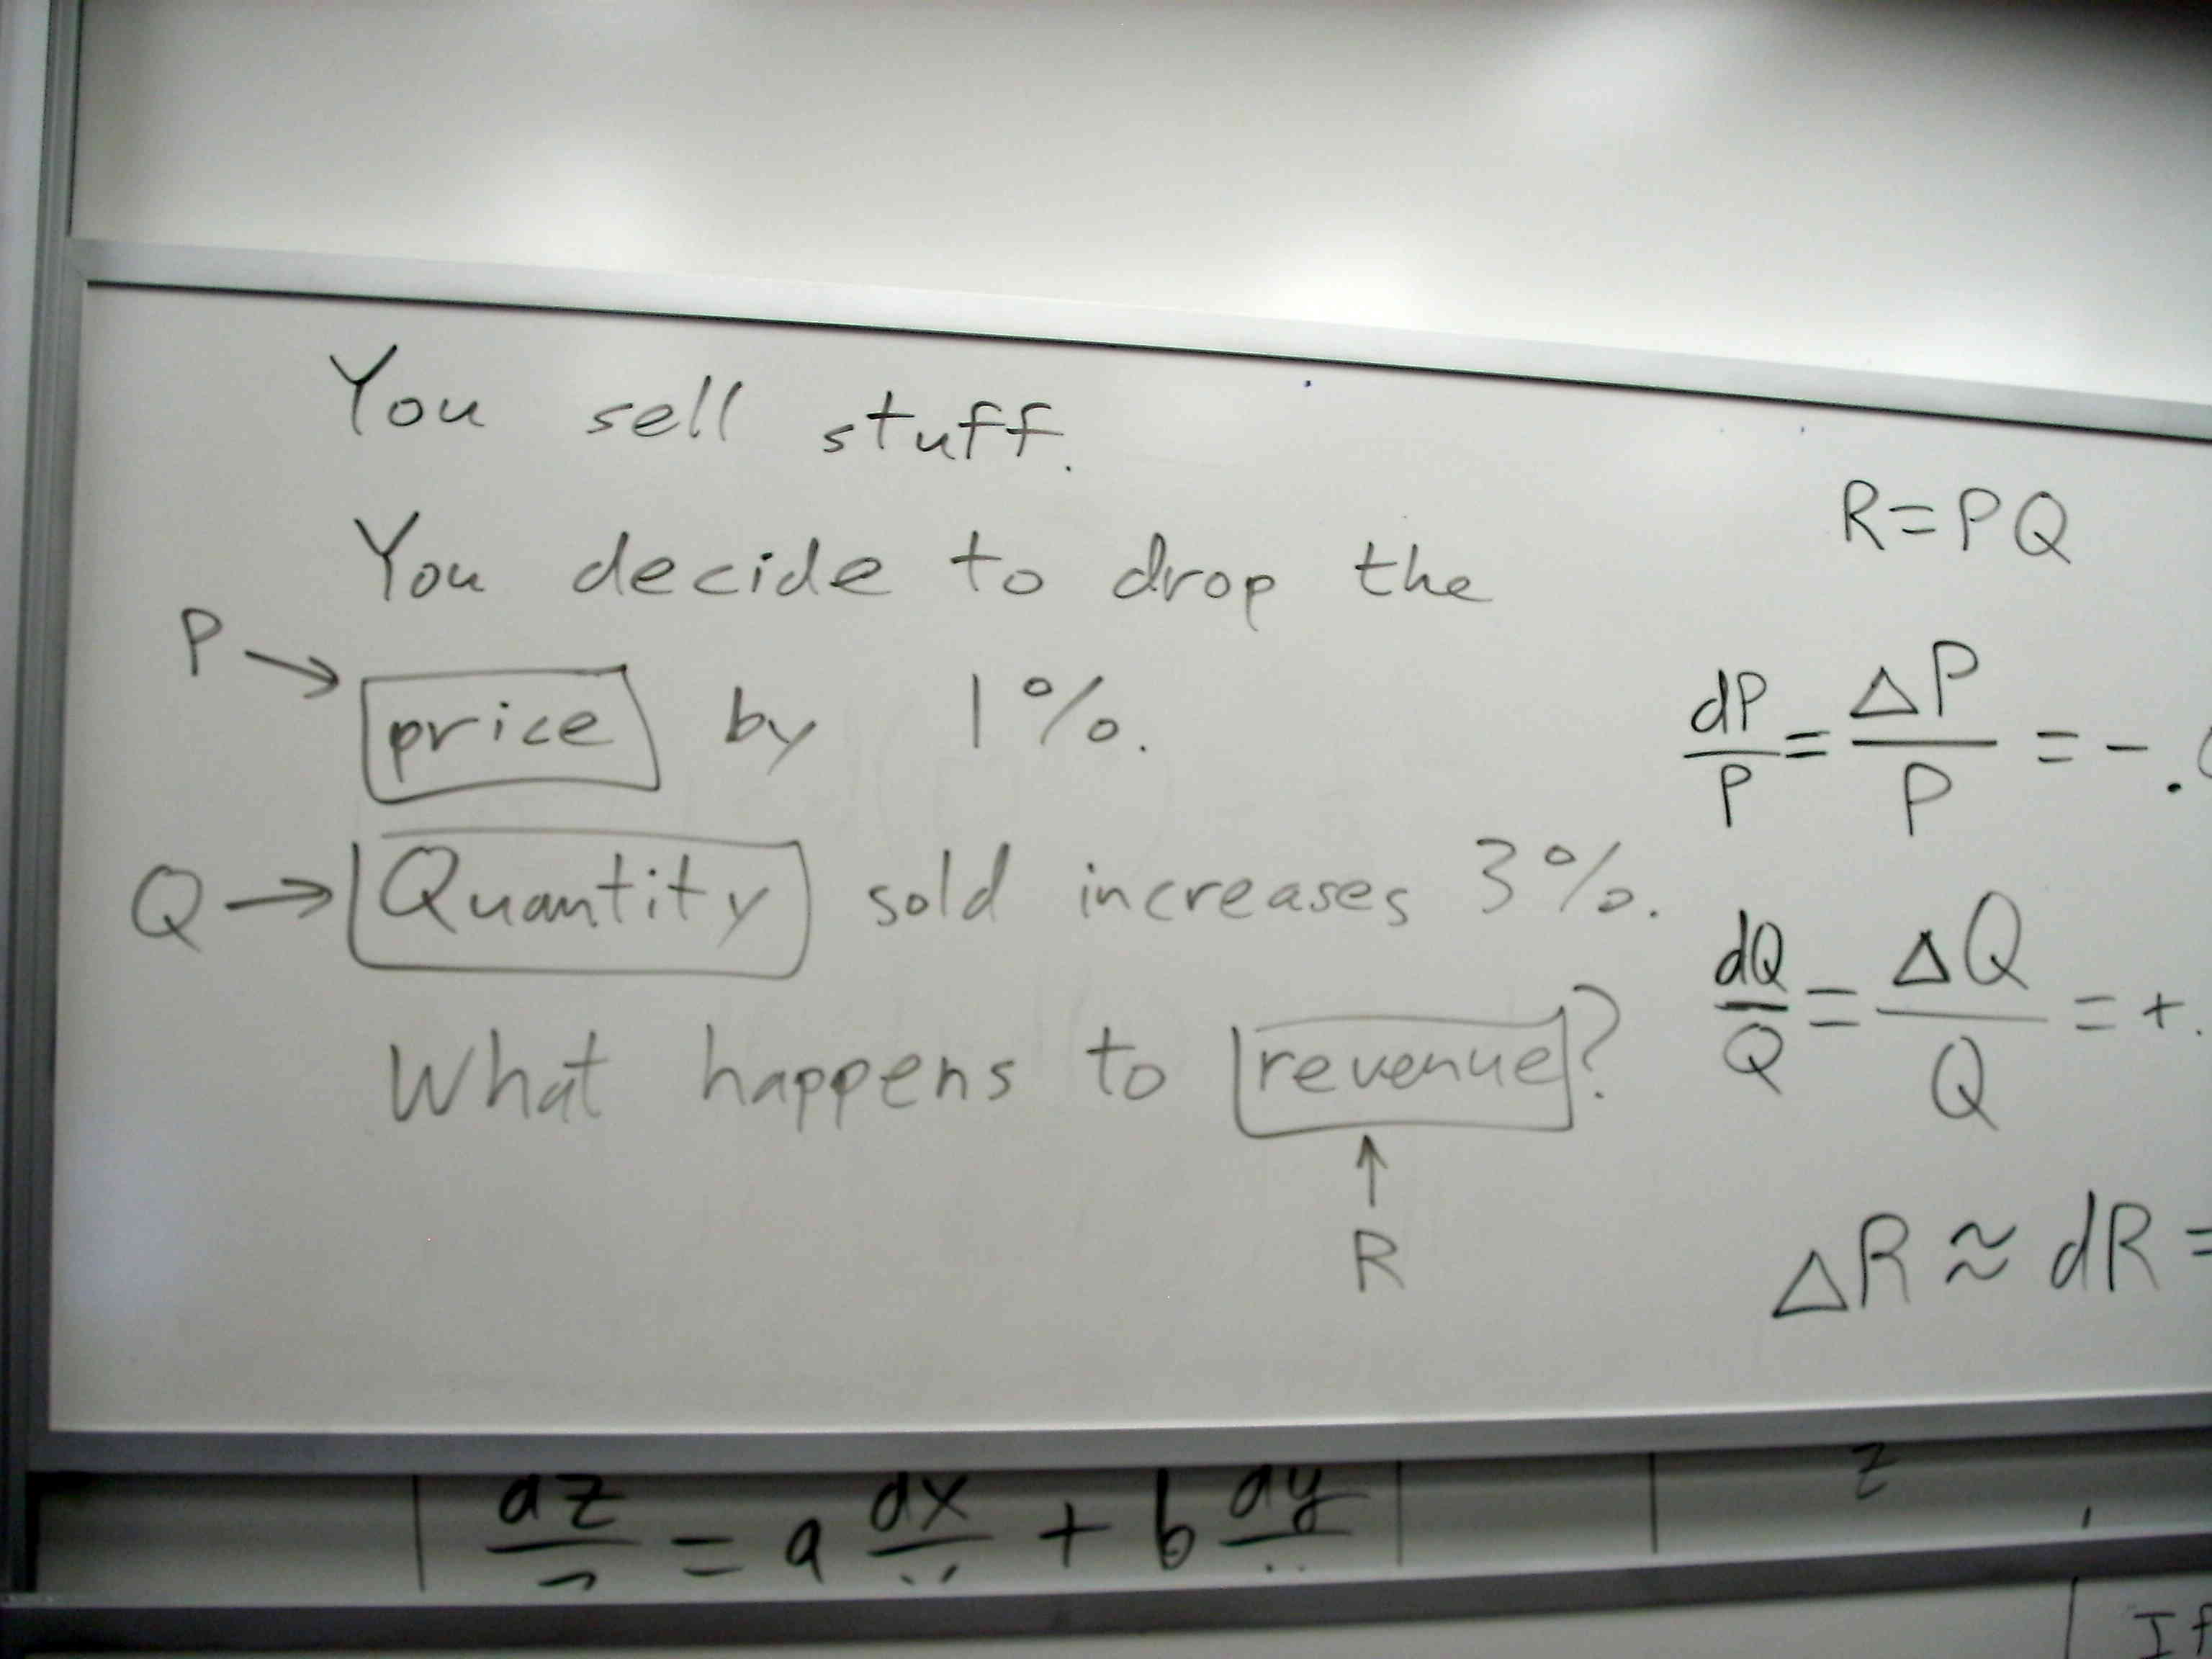 You sell stuff.
You decide to drop the
P → price by 1%.
Q → Quantity sold increases 3%.
What happens to revenue?
↑
R
R=PQ
dP/P = ΔP/P = -.
dQ/Q = ΔQ/Q = +.
ΔR ≈ dR =
dz = a dx + b dy
z
If